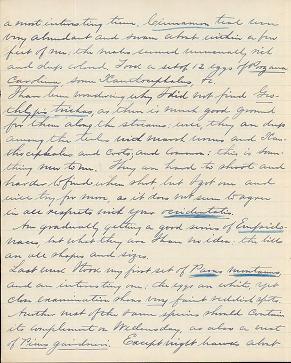 a most interesting time, Cinnamon teal were
very abundant and swam about within a few
feet of me, the males seemed unusually rich
and deep colored. Took a set of 12 eggs of Porzana
Carolina, some Xanthocephalus &c.
I have been wondering why I did not find Geo-
thlypis trichas, as there is much good ground
for them along the streams, well they are deep
among the tules with marsh wrens and Xan-
thocephalus and Coots, and common; this is some
thing new to me. They are hard to shoot and
harder to find when shot but I got one and
will try for more, as it does not seem to agree
in all respects with your occidentalis.
Am gradually getting a good series of Empido-
naces, but what they are I have no idea. the bills
are all shapes and sizes.
Last week I took my first set of Parus montanus,
and an interesting one; the eggs are white, yet
close examination shows very faint reddish spots.
Another nest of the same species should contain
its complement on Wednesday, as also a nest
of Picus gairdneri. Except night herons about